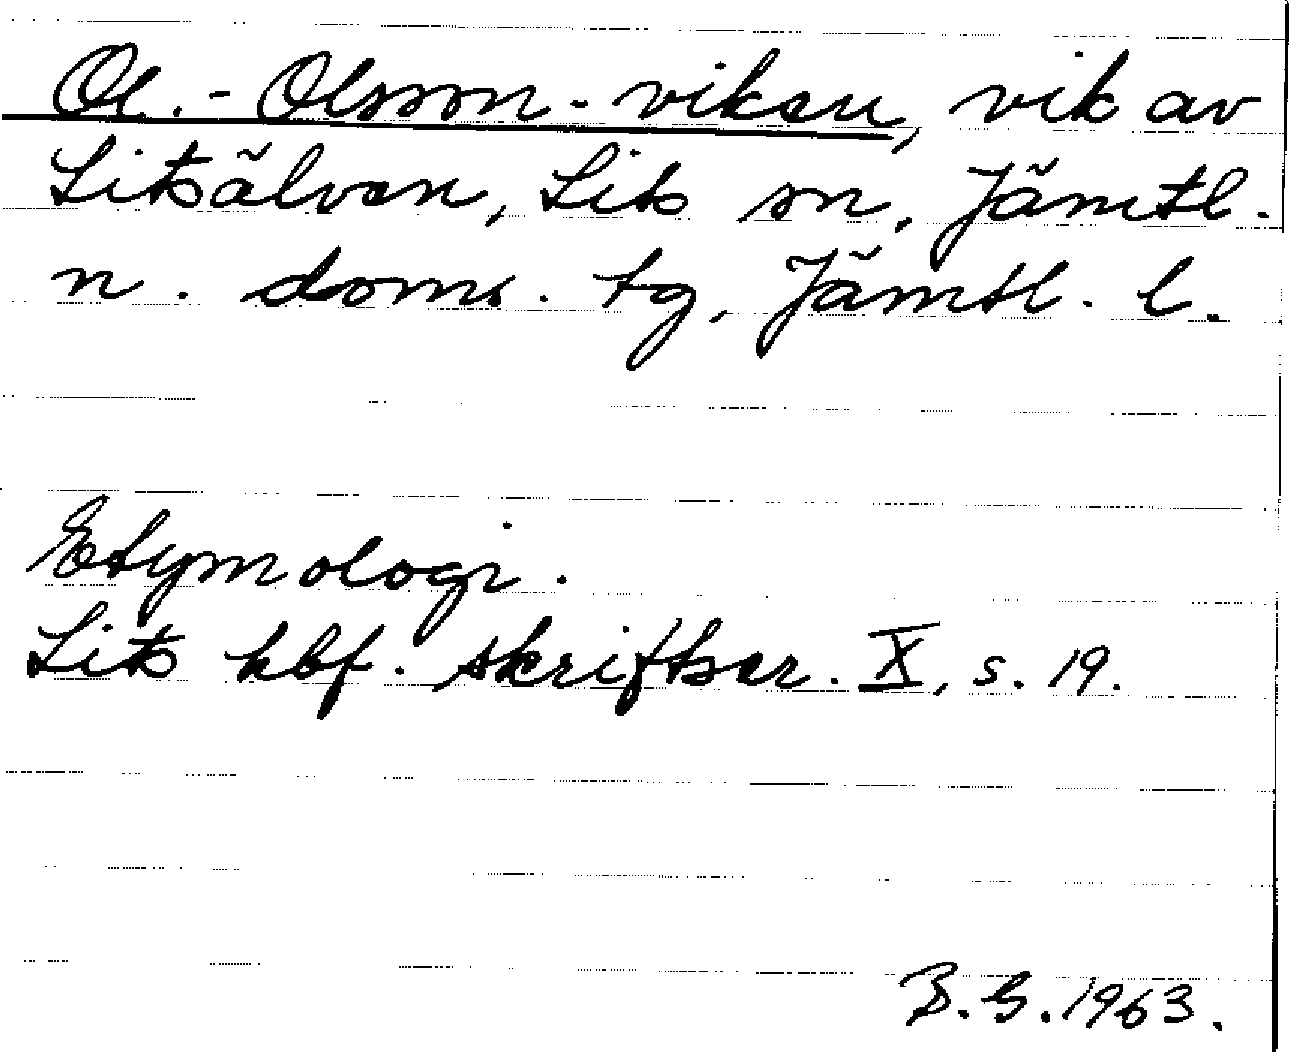 Ol.-Olsson-viken, vik av
Litsälven, Lits sn, Jämtl.
n. doms. tg, Jämtl. l.
Etymologi.
Lits hbf. skriftser. X, s. 19.
B.G. 1963.